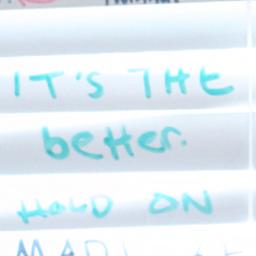 IT'S THE
better.
HOLD ON